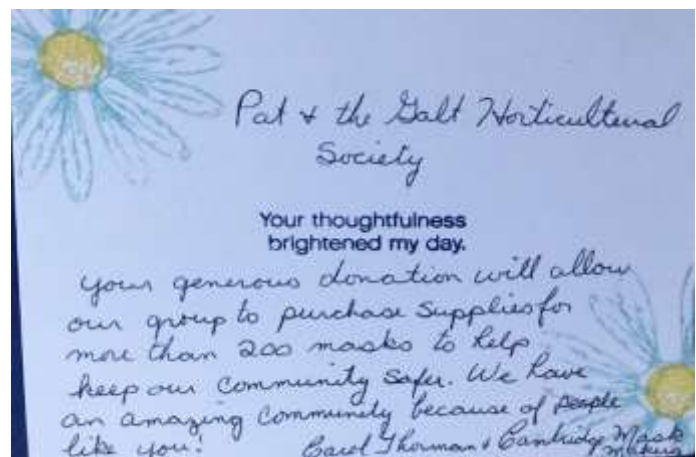 Pat & the Galt Horticultural
Society
Your thoughtfulness
brightened my day.
your generous donation will allow
our group to purchase supplies for
more than 200 masks to help
keep our community safer. We have
an amazing community because of people
like you!
Carol Thorman & Cambridge Mask
Makers